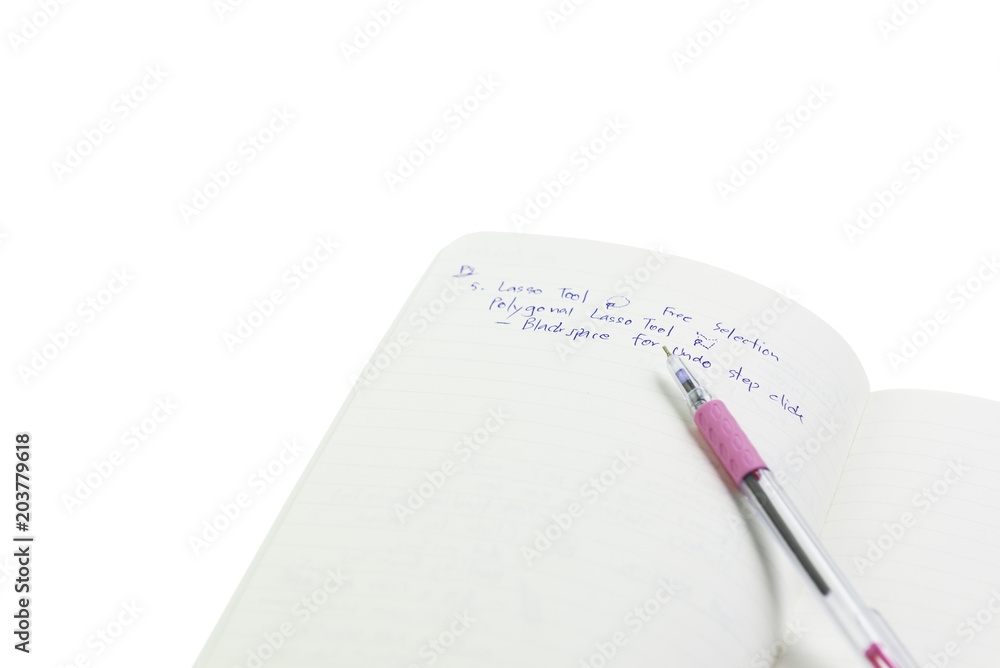 5. Lasso Tool Free Selection
Polygonal Lasso Tool
- Blackspace for undo step click
Adobe Stock | #203779618